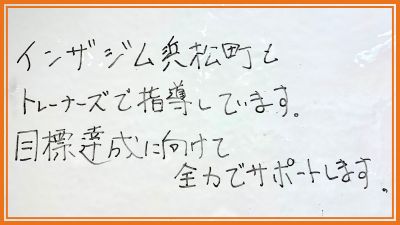 インザジム浜松町も
トレーナーズで指導しています。
目標達成に向けて
全力でサポートします。